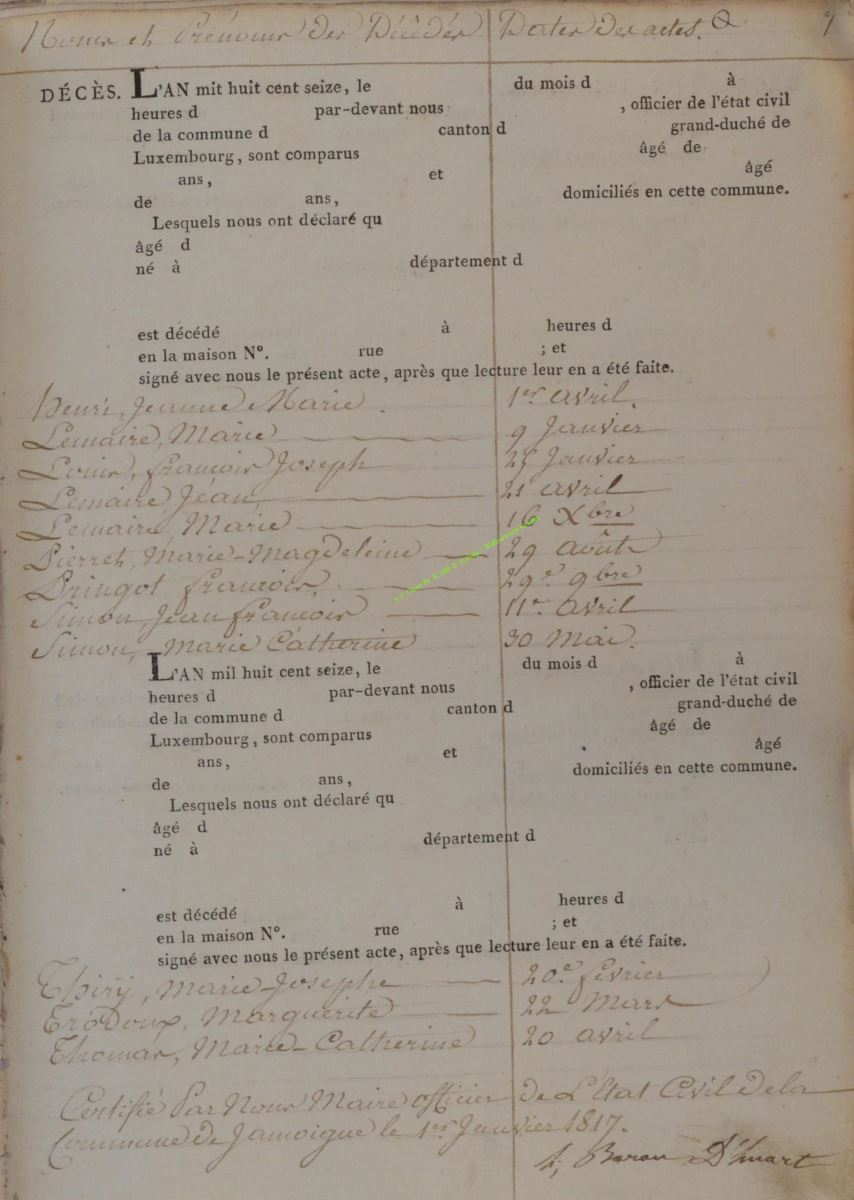 Noms et Prénoms des Décédés Dates des actes. 9
DÉCÈS. L'AN mil huit cent seize, le du mois d à
heures d par-devant nous , officier de l'état civil
de la commune d canton d grand-duché de
Luxembourg, sont comparus âgé de
ans, et âgé
de ans, domiciliés en cette commune.
Lesquels nous ont déclaré qu
âgé d
né à département d
est décédé à heures d
en la maison N°. rue ; et
signé avec nous le présent acte, après que lecture leur en a été faite.
henri, Jeanne Marie. 1er avril.
Lemaire, Marie 9 Janvier
Louis, françois Joseph 25 Janvier
Lemaire, Jean 21 avril
Lemaire, Marie 16 Xbre
Pierret, Marie-Magdeleine 29 août
Pringot françois, 29e 9bre
Simon, Jean françois 11er avril
Simon, Marie Catherine 30 Mai.
L'AN mil huit cent seize, le du mois d à
heures d par-devant nous , officier de l'état civil
de la commune d canton d grand-duché de
Luxembourg, sont comparus âgé de
ans, et âgé
de ans, domiciliés en cette commune.
Lesquels nous ont déclaré qu
âgé d
né à département d
est décédé à heures d
en la maison N°. rue ; et
signé avec nous le présent acte, après que lecture leur en a été faite.
Thirÿ, Marie-Josephe 20e février
Erodoux, Marguerite 22 Mars
Thomas, Marie-Catherine 20 avril
Certifié Par Nous Maire officier de L'Etat Civil de la
Commune de Jamoigne le 1er Janvier 1817.
Baron D'huart